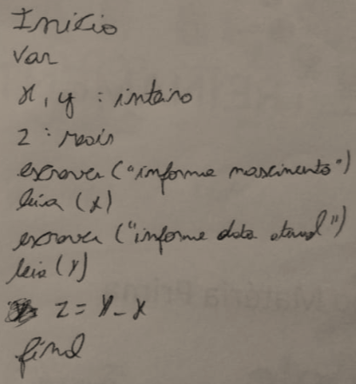 Início
Var
x, y : inteiro
z : reais
escrever ("informe nascimento")
leia (x)
escrever ("informe data atual")
leia (y)
z = y - x
final